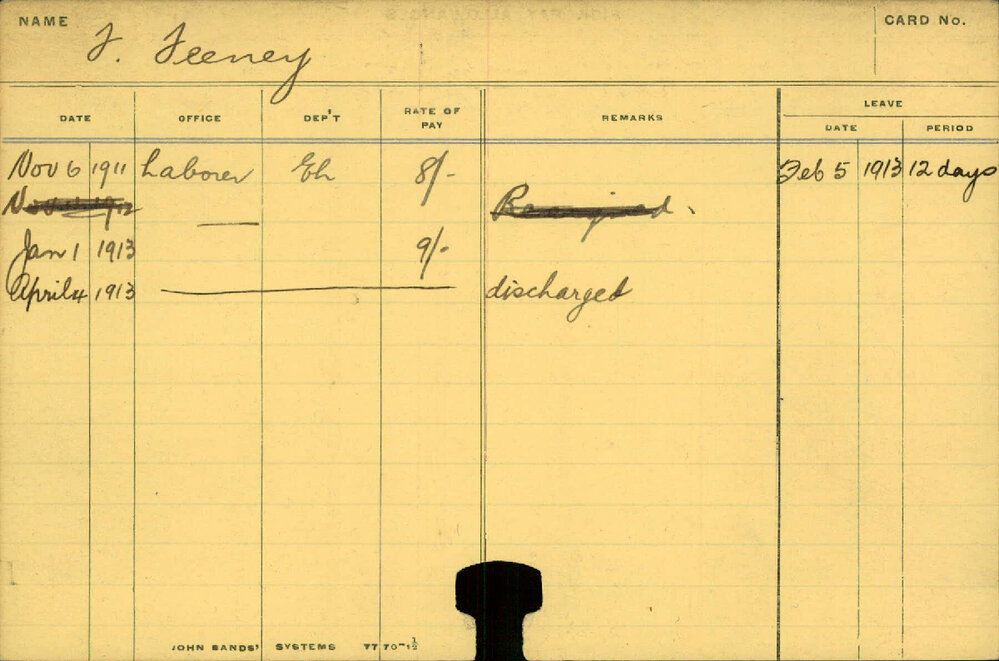 NAME F. Feeney CARD No.
LEAVE
DATE OFFICE DEP'T RATE OF PAY REMARKS DATE PERIOD
Nov 6 1911 Laborer Eh 8/- Feb 5 1913 12 days
Resigned.
Jan 1 1913 9/-
April 4 1913 discharged
JOHN SANDS' SYSTEMS 7770-12